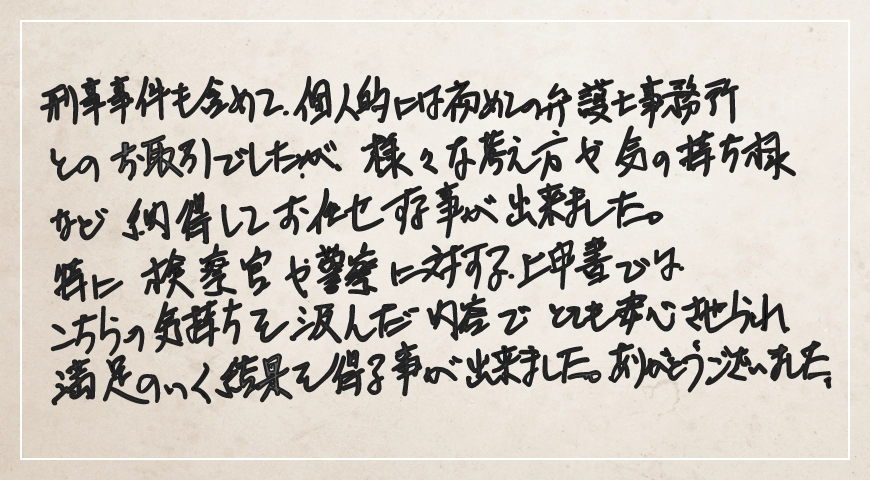 刑事事件も含めて、個人的には初めての弁護士事務所
とのお取引でしたが、様々な考え方や気の持ち様
など納得してお任せする事が出来ました。
特に検察官や警察に対する、上申書では
こちらの気持ちを汲んだ内容でとても安心させられ
満足のいく結果を得る事が出来ました。ありがとうございました。